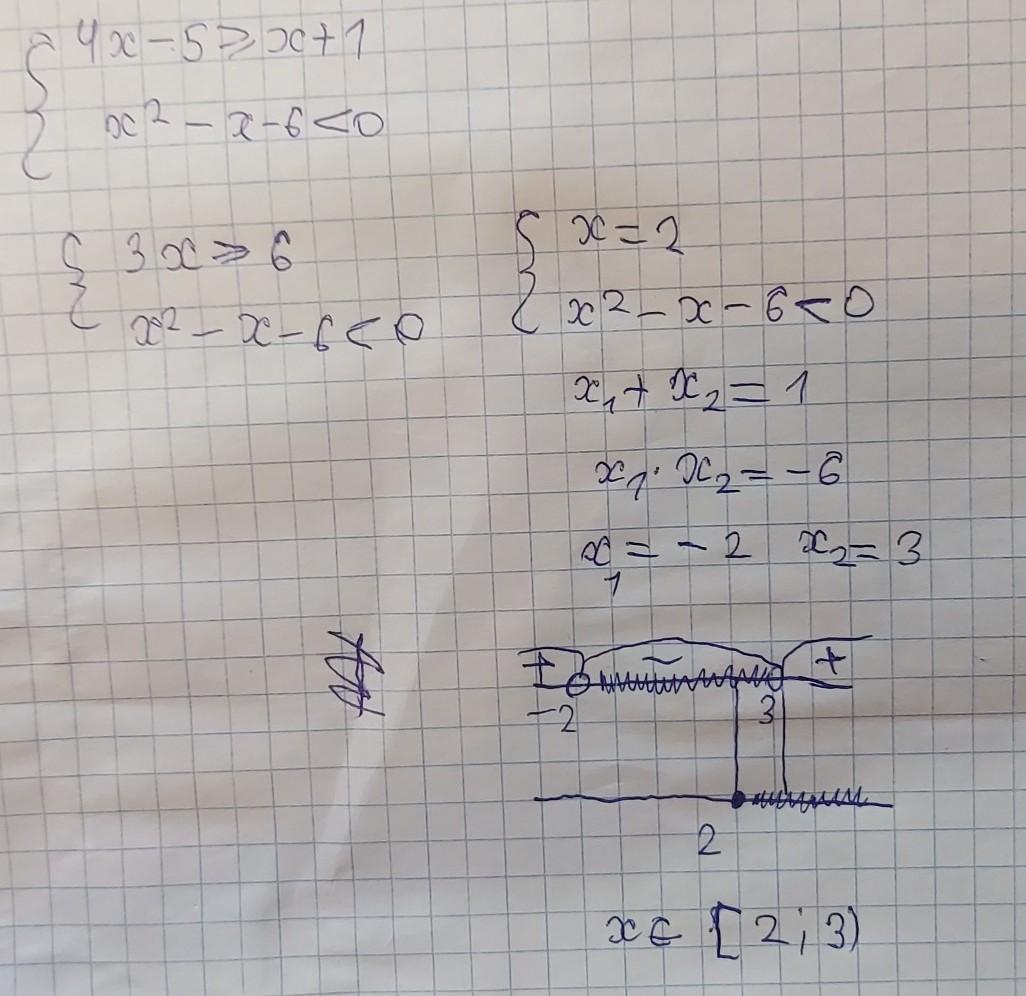 4x-5⩾x+1
x²-x-6<0
3x⩾6
x²-x-6<0
x=2
x²-x-6<0
x₁+x₂=1
x₁·x₂=-6
x₁=-2 x₂=3
+ - +
-2 3
2
x∈[2;3)